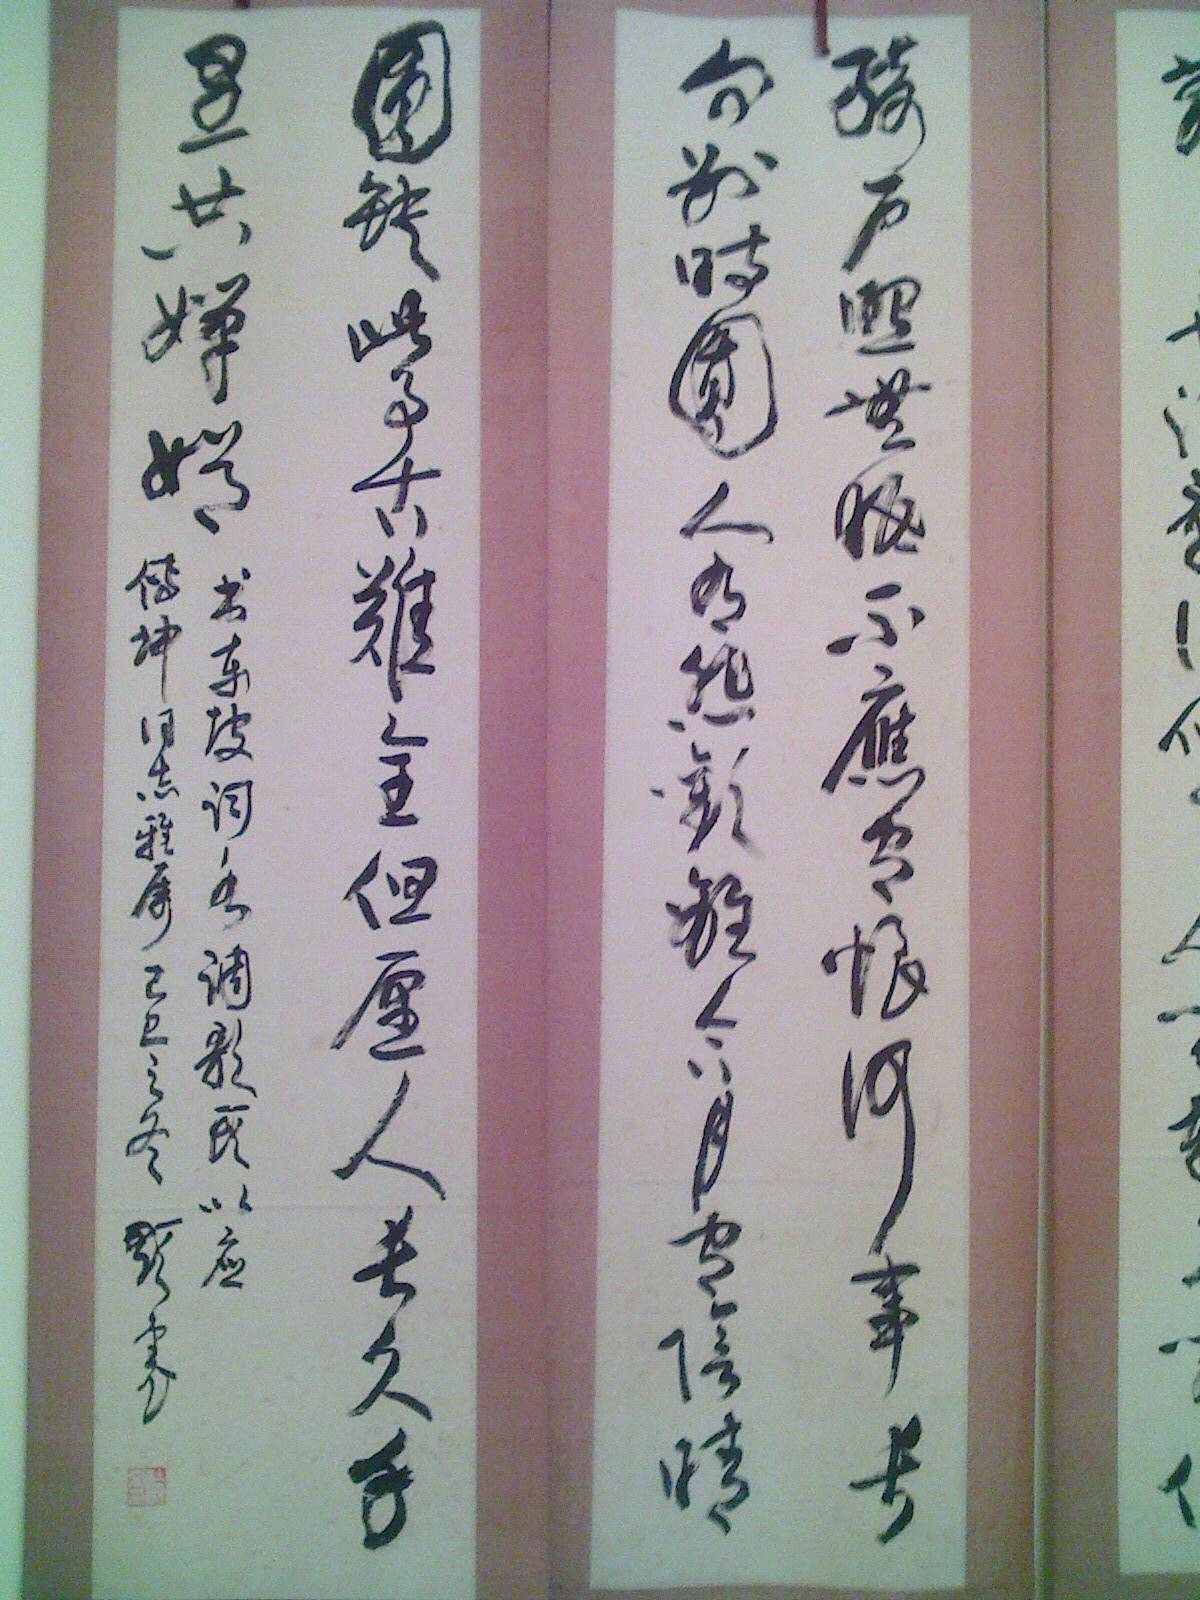 綺户照無眠不應有恨何事長
向别時圓人有悲歡離合月有陰晴
圓缺此事古難全但愿人長久千
里共嬋娟
书东坡词水调歌头以应
坤同志雅属己巳之冬